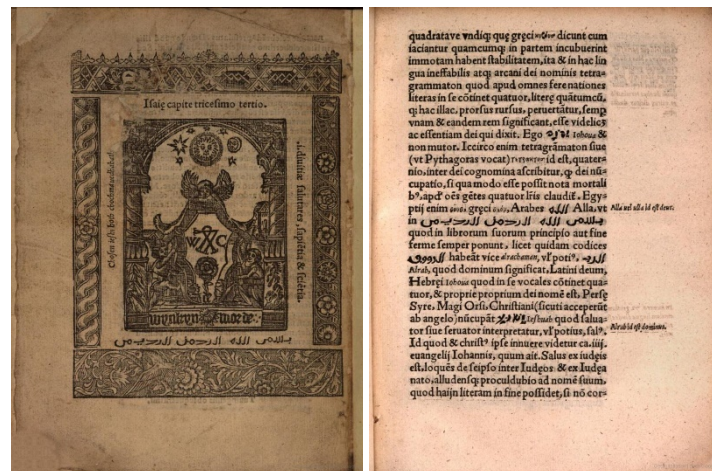 Isaię capite tricesimo tertio.
diuitiæ salutares, sapiẽtia & sciẽtia.
W C
wynkyn de worde
quadratave vndiq; quę gręci dicunt cum
iaciantur quamcumq; in partem incubuerint
immotam habent stabilitatem, ita & in hac lin
gua ineffabilis atq; arcani dei nominis tetra-
grammaton quod apud omnes fere nationes
literas in se cõtinet quatuor, literę quãtumcũ,
q; hac illac, prorsus rursus, peruertãtur, semp
vnam & eandem rem significant, esse videlicȝ
ac essentiam dei qui dixit. Ego Iehoua &
non mutor. Iccirco enim tetragrãmaton siue
(vt Pythagoras vocat) id est, quater-
nio, inter dei cognomina ascribitur, q; dei nũ-
cupatio, si qua modo esse possit nota mortali
bꝰ, apd' oẽs gẽtes quatuor lr̃is claudit̃. Egy-
ptij enim gręci Arabes الله Alla, vt
in
quod in librorum suorum principio aut fine
ferme semper ponunt, licet quidam codices
habeãt vice drachaman, vl' poti⁹,
Alrab, quod dominum significat. Latini deum,
Hebręi Iehoua quod in se vocales cõtinet qua-
tuor, & proprie proprium dei nomẽ est. Persę
Syre. Magi Orsi. Christiani (sicuti acceperũt
ab angelo) nũcupãt Ieshuah quod salua-
tor siue seruator interpretatur, vl' potius, salꝰ.
Id quod & christꝰ ipse innuere videtur ca. iiij.
euangelij Iohannis, quum ait. Salus ex iudęis
est, loquẽs de seipso inter Iudęos & ex Iudęa
nato, alludensq; proculdubio ad nomẽ suum,
quod haijn literam in fine possidet, si nõ cor-
Alla vel alla id est deus.
Alrab id est dominus.